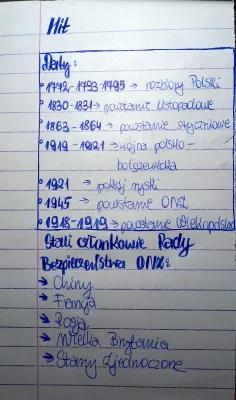 Hit
Daty:
1772-1793-1795 → rozbiory Polski
1830-1831 → powstanie listopadowe
1863-1864 → powstanie styczniowe
1919-1921 → wojna polsko-
bolszewicka
1921 → pokój ryski
1945 → powstanie ONZ
1918-1919 → powstanie Wielkopolskie
Stali członkowie Rady
Bezpieczeństwa ONZ:
→ Chiny
→ Francja
→ Rosja
→ Wielka Brytania
→ Stany Zjednoczone